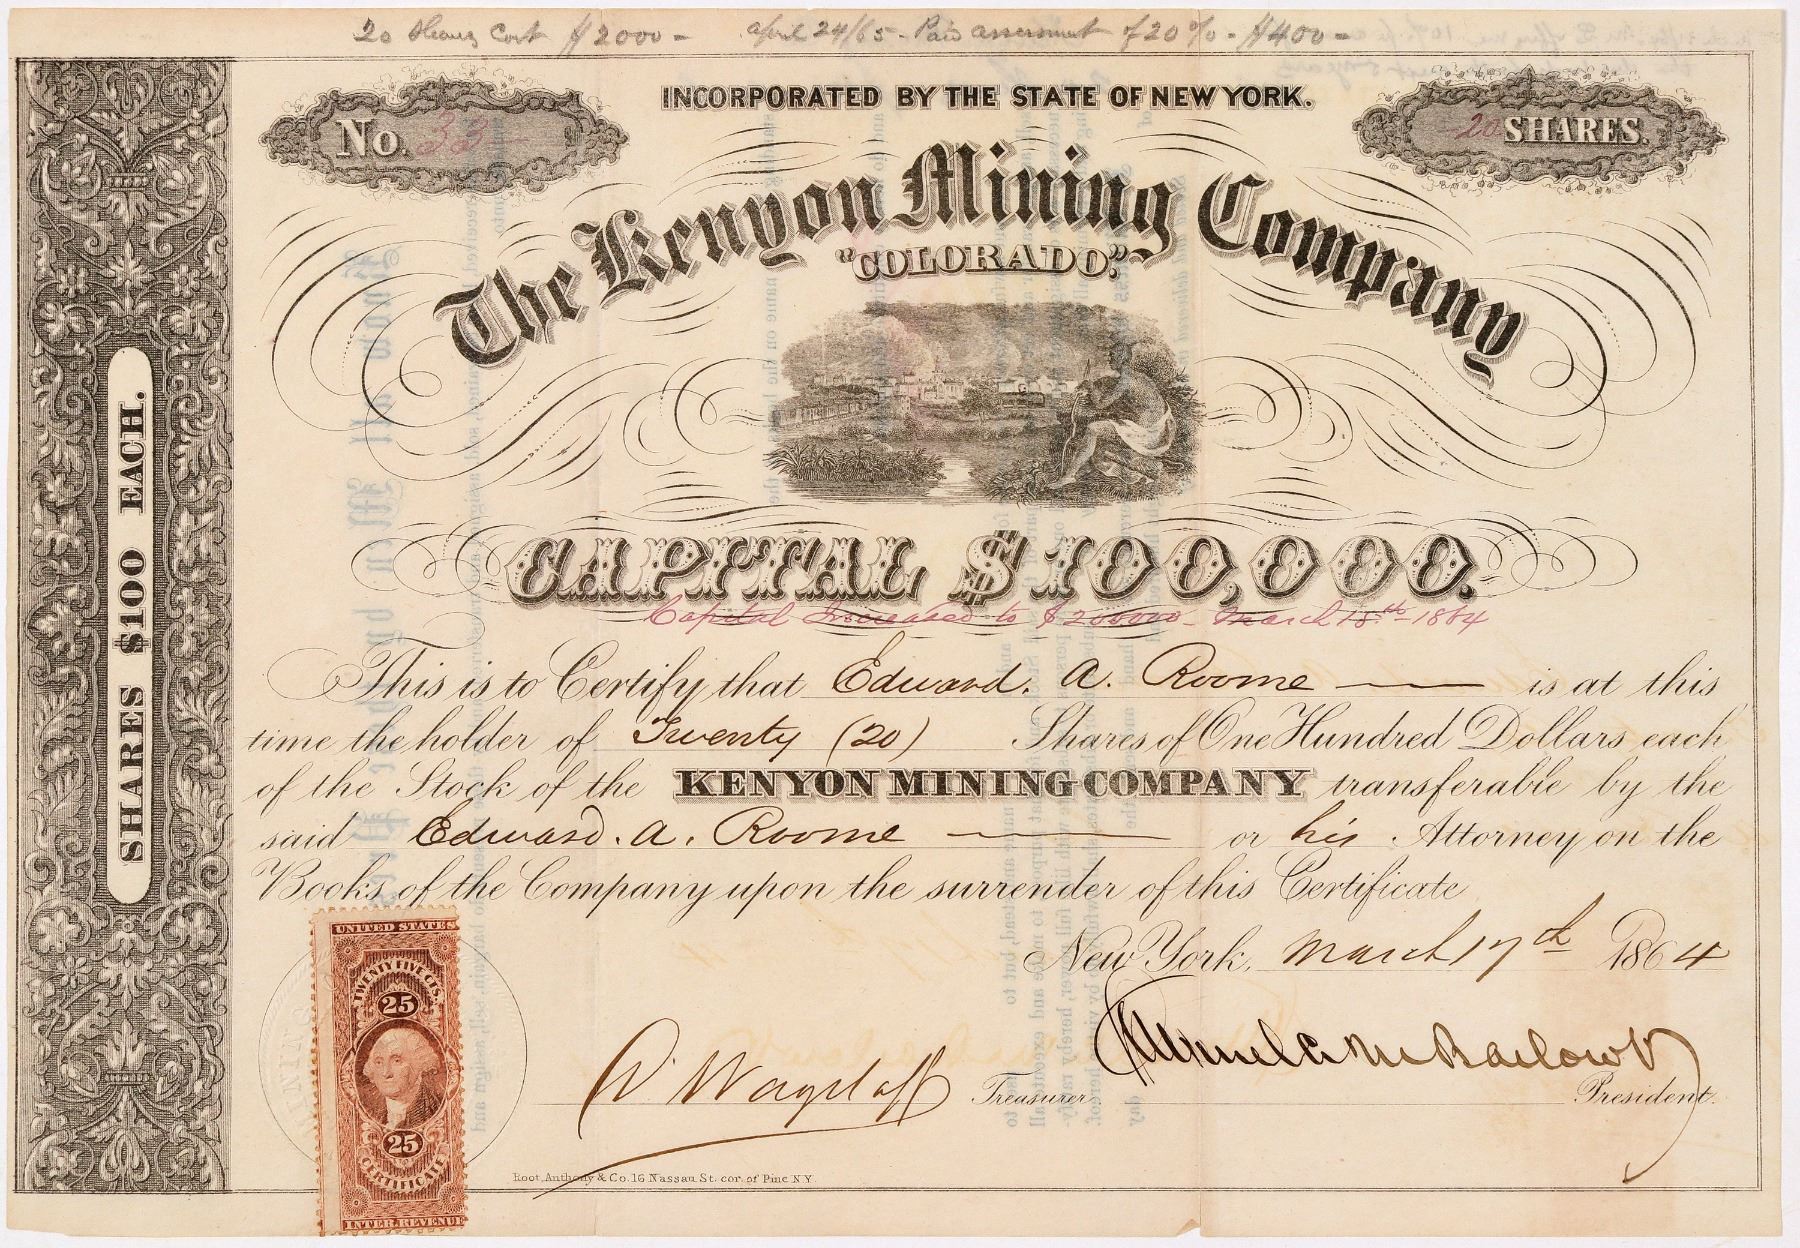 20 Shares Cost $2000 - April 24/65 - Paid assessment of 20% - $400 -
INCORPORATED BY THE STATE OF NEW YORK.
No. 33
20 SHARES.
The Kenyon Mining Company
"COLORADO."
CAPITAL $100,000.
Capital Increased to $200000 - March 15th - 1864
This is to Certify that Edward. A. Roome is at this
time the holder of Twenty (20) Shares of One Hundred Dollars each
of the Stock of the KENYON MINING COMPANY transferable by the
said Edward. A. Roome or his Attorney on the
Books of the Company upon the surrender of this Certificate
New York, March 17th 1864
W. Wagstaff Treasurer
President.
Root, Anthony & Co. 16 Nassau St. cor. of Pine N.Y.
SHARES $100 EACH.
UNITED STATES
TWENTY FIVE CTS.
25
25
CERTIFICATE
INTER. REVENUE
MINING